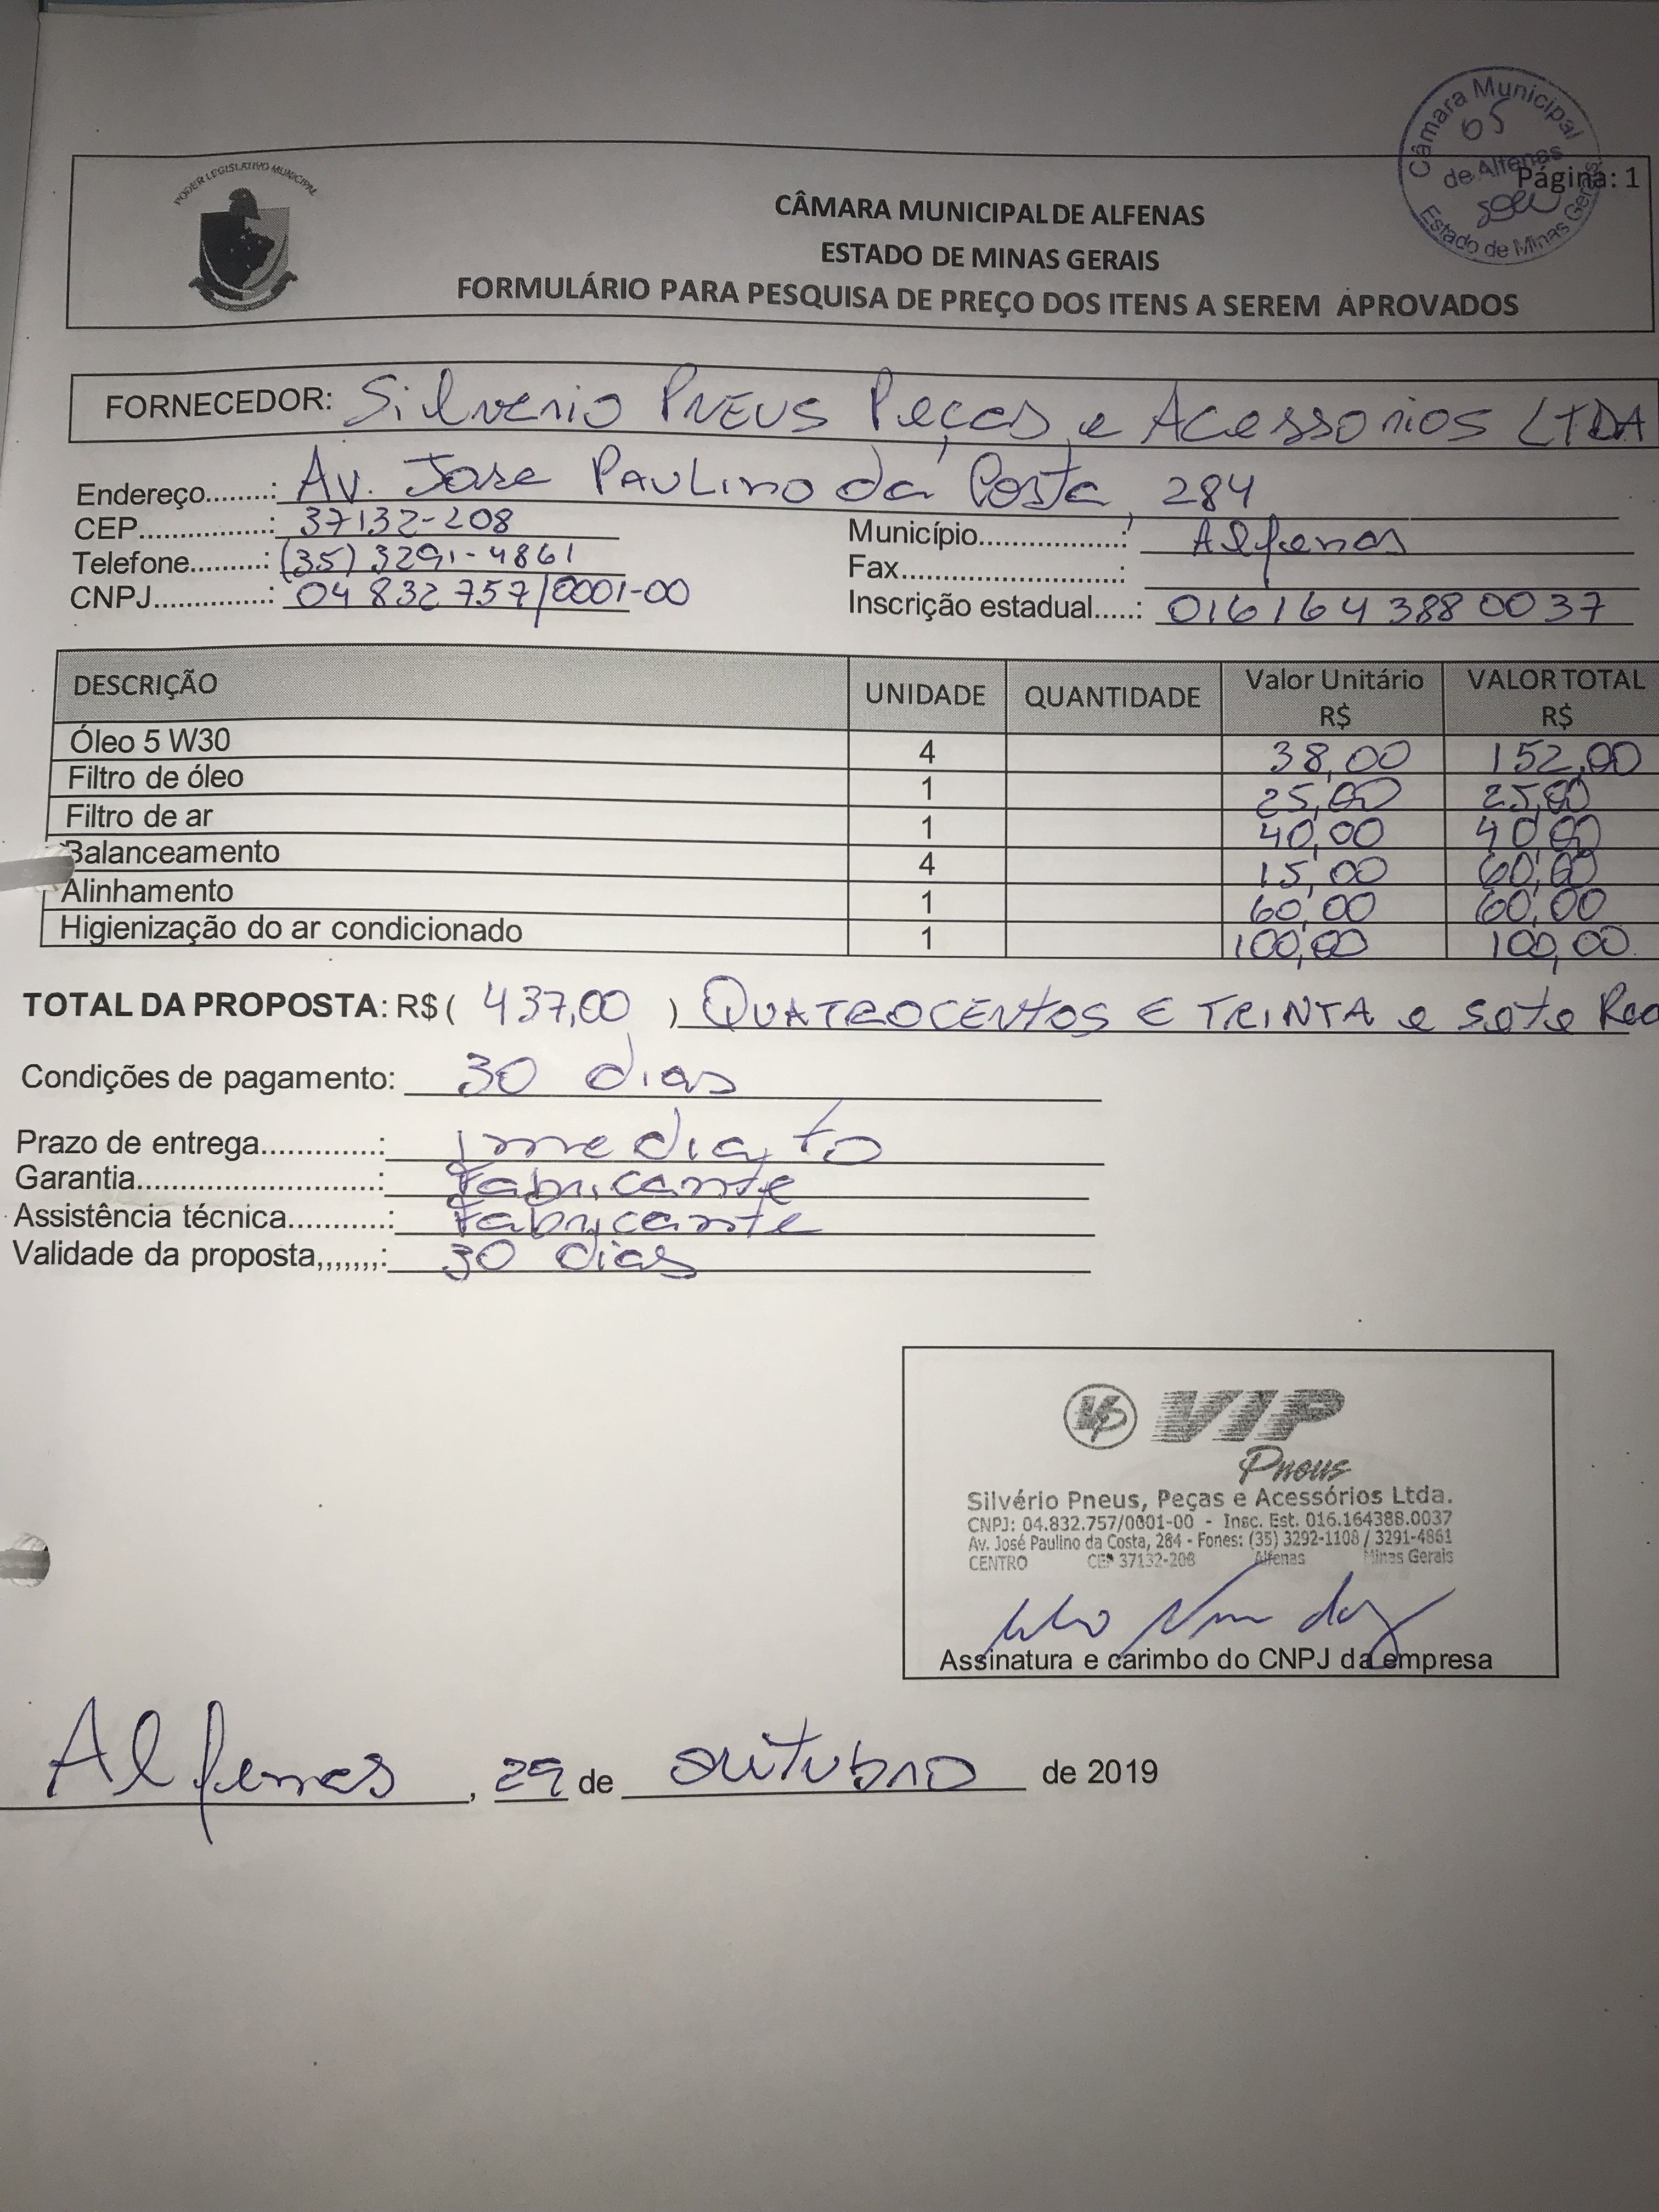 Câmara Municipal
05
de Alfenas
Estado de Minas Gerais
Página: 1
PODER LEGISLATIVO MUNICIPAL
CÂMARA MUNICIPAL DE ALFENAS
ESTADO DE MINAS GERAIS
FORMULÁRIO PARA PESQUISA DE PREÇO DOS ITENS A SEREM APROVADOS
FORNECEDOR: Silverio PNEUS Peças e Acessorios LTDA
Endereço........: Av. Jose PAULino da Costa, 284
CEP.................: 37132-208 Município..................: Alfenas
Telefone..........: (35) 3291-4861 Fax...........................:
CNPJ...............: 04 832 757/0001-00 Inscrição estadual.....: 016164 388 00 37
DESCRIÇÃO UNIDADE QUANTIDADE Valor Unitário R$ VALOR TOTAL R$
Óleo 5 W30 4 38,00 152,00
Filtro de óleo 1 25,00 25,00
Filtro de ar 1 40,00 40,00
Balanceamento 4 15,00 60,00
Alinhamento 1 60,00 60,00
Higienização do ar condicionado 1 100,00 100,00
TOTAL DA PROPOSTA: R$ ( 437,00 ) QUATROCENTOS E TRINTA e sete Rea
Condições de pagamento: 30 dias
Prazo de entrega.............: imediato
Garantia...........................: Fabricante
Assistência técnica...........: Fabricante
Validade da proposta,,,,,,,: 30 dias
VP VIP
Pneus
Silvério Pneus, Peças e Acessórios Ltda.
CNPJ: 04.832.757/0001-00 - Insc. Est. 016.164388.0037
Av. José Paulino da Costa, 284 - Fones: (35) 3292-1108 / 3291-4861
CENTRO CEP 37132-208 Alfenas Minas Gerais
Assinatura e carimbo do CNPJ da empresa
Alfenas, 29 de outubro de 2019